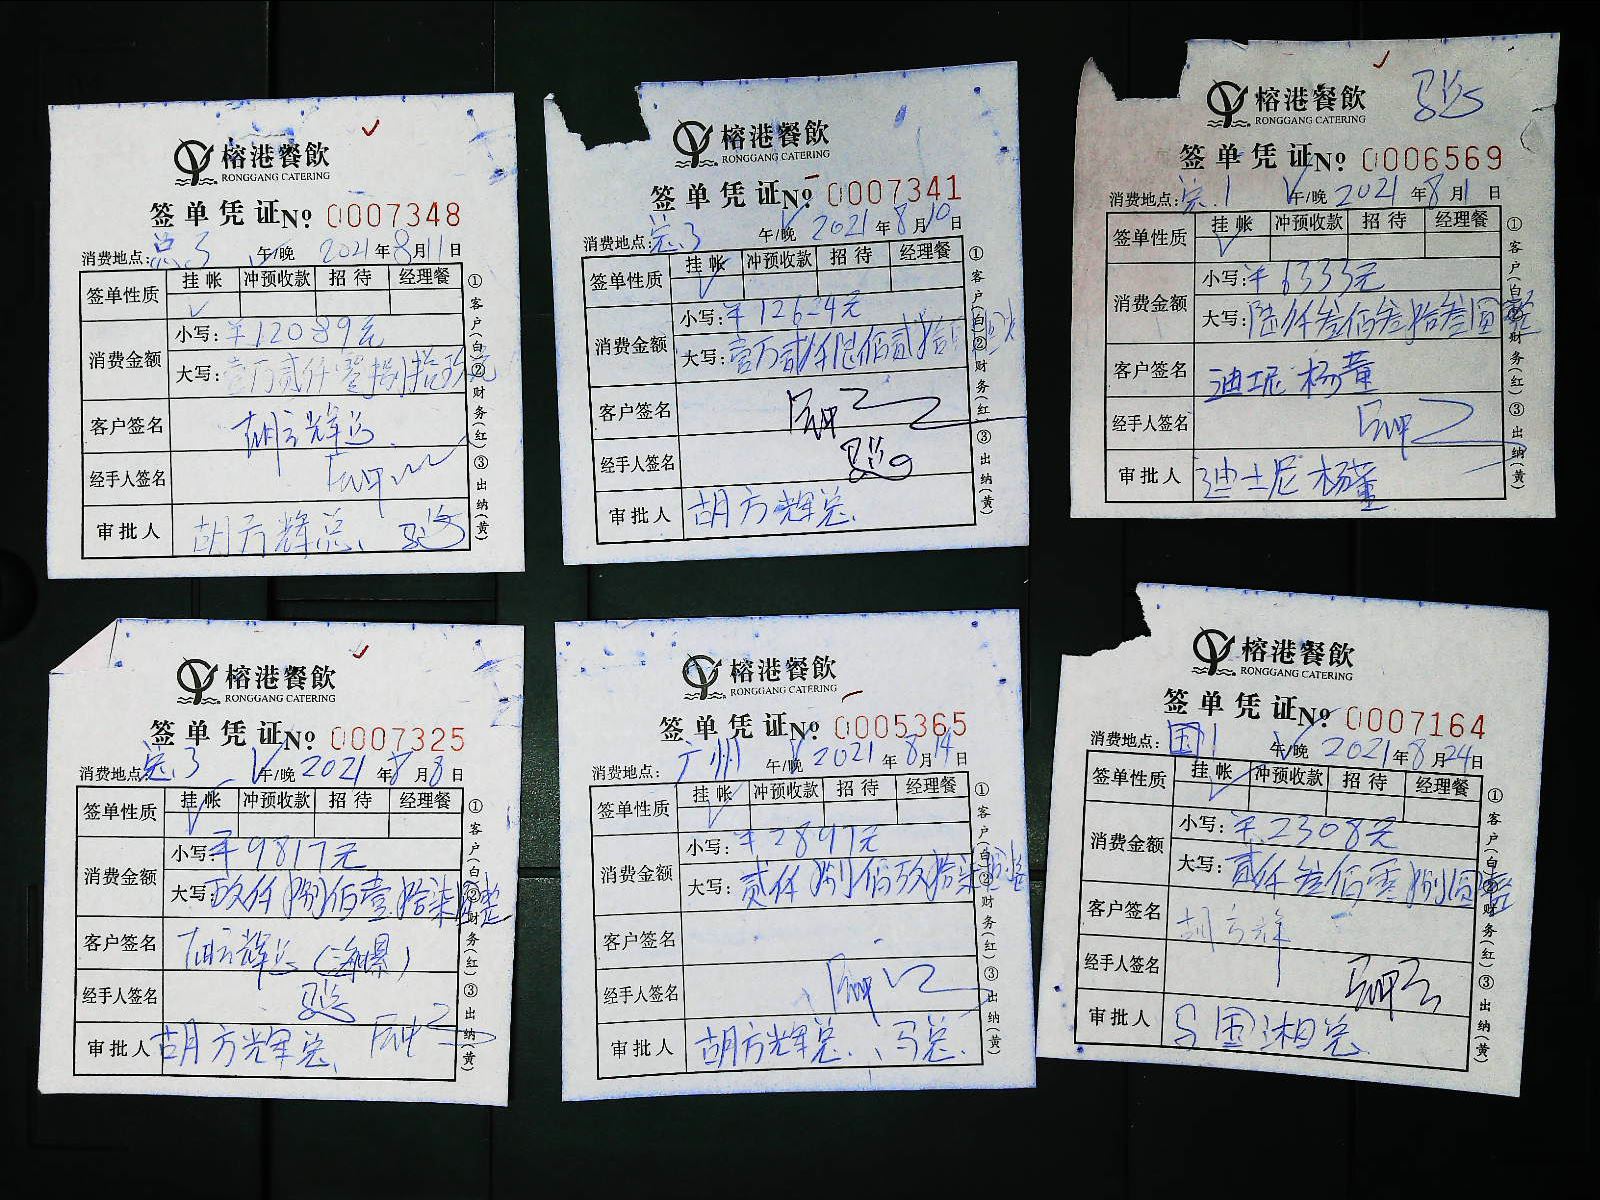 榕港餐飲
RONGGANG CATERING
签单凭证 No 0007348
消费地点: 总3 午/晚 2021年8月11日
签单性质 挂帐 冲预收款 招待 经理餐
✓
消费金额 小写: ¥12089元
大写: 壹万贰仟零捌拾玖元
客户签名 胡方辉总
经手人签名
审批人 胡方辉总、马总
①客户(白)②财务(红)③出纳(黄)
榕港餐飲
RONGGANG CATERING
签单凭证 No 0007341
消费地点: 总3 午/晚 2021年8月10日
签单性质 挂帐 冲预收款 招待 经理餐
✓
消费金额 小写: ¥12624元
大写: 壹万贰仟陆佰贰拾
客户签名
经手人签名 马总
审批人 胡方辉总、
①客户(白)②财务(红)③出纳(黄)
榕港餐飲 马总
RONGGANG CATERING
签单凭证 No 0006569
消费地点: 总1 午/晚 2021年8月1日
签单性质 挂帐 冲预收款 招待 经理餐
✓
消费金额 小写: ¥6333元
大写: 陆仟叁佰叁拾叁圆整
客户签名 迪士尼 杨董
经手人签名
审批人 迪士尼 杨董
①客户(白)②财务(红)③出纳(黄)
榕港餐飲
RONGGANG CATERING
签单凭证 No 0007325
消费地点: 总3 午/晚 2021年8月8日
签单性质 挂帐 冲预收款 招待 经理餐
✓
消费金额 小写: ¥9817元
大写: 玖仟捌佰壹拾柒圆整
客户签名 胡方辉总(海螺)
经手人签名 马总
审批人 胡方辉总、
①客户(白)②财务(红)③出纳(黄)
榕港餐飲
RONGGANG CATERING
签单凭证 No 0005365
消费地点: 广州 午/晚 2021年8月14日
签单性质 挂帐 冲预收款 招待 经理餐
✓
消费金额 小写: ¥2897元
大写: 贰仟捌佰玖拾柒圆整
客户签名
经手人签名
审批人 胡方辉总、马总
①客户(白)②财务(红)③出纳(黄)
榕港餐飲
RONGGANG CATERING
签单凭证 No 0007164
消费地点: 国1 午/晚 2021年8月24日
签单性质 挂帐 冲预收款 招待 经理餐
✓
消费金额 小写: ¥2308元
大写: 贰仟叁佰零捌圆整
客户签名 胡方辉
经手人签名
审批人 马国湘总
①客户(白)②财务(红)③出纳(黄)